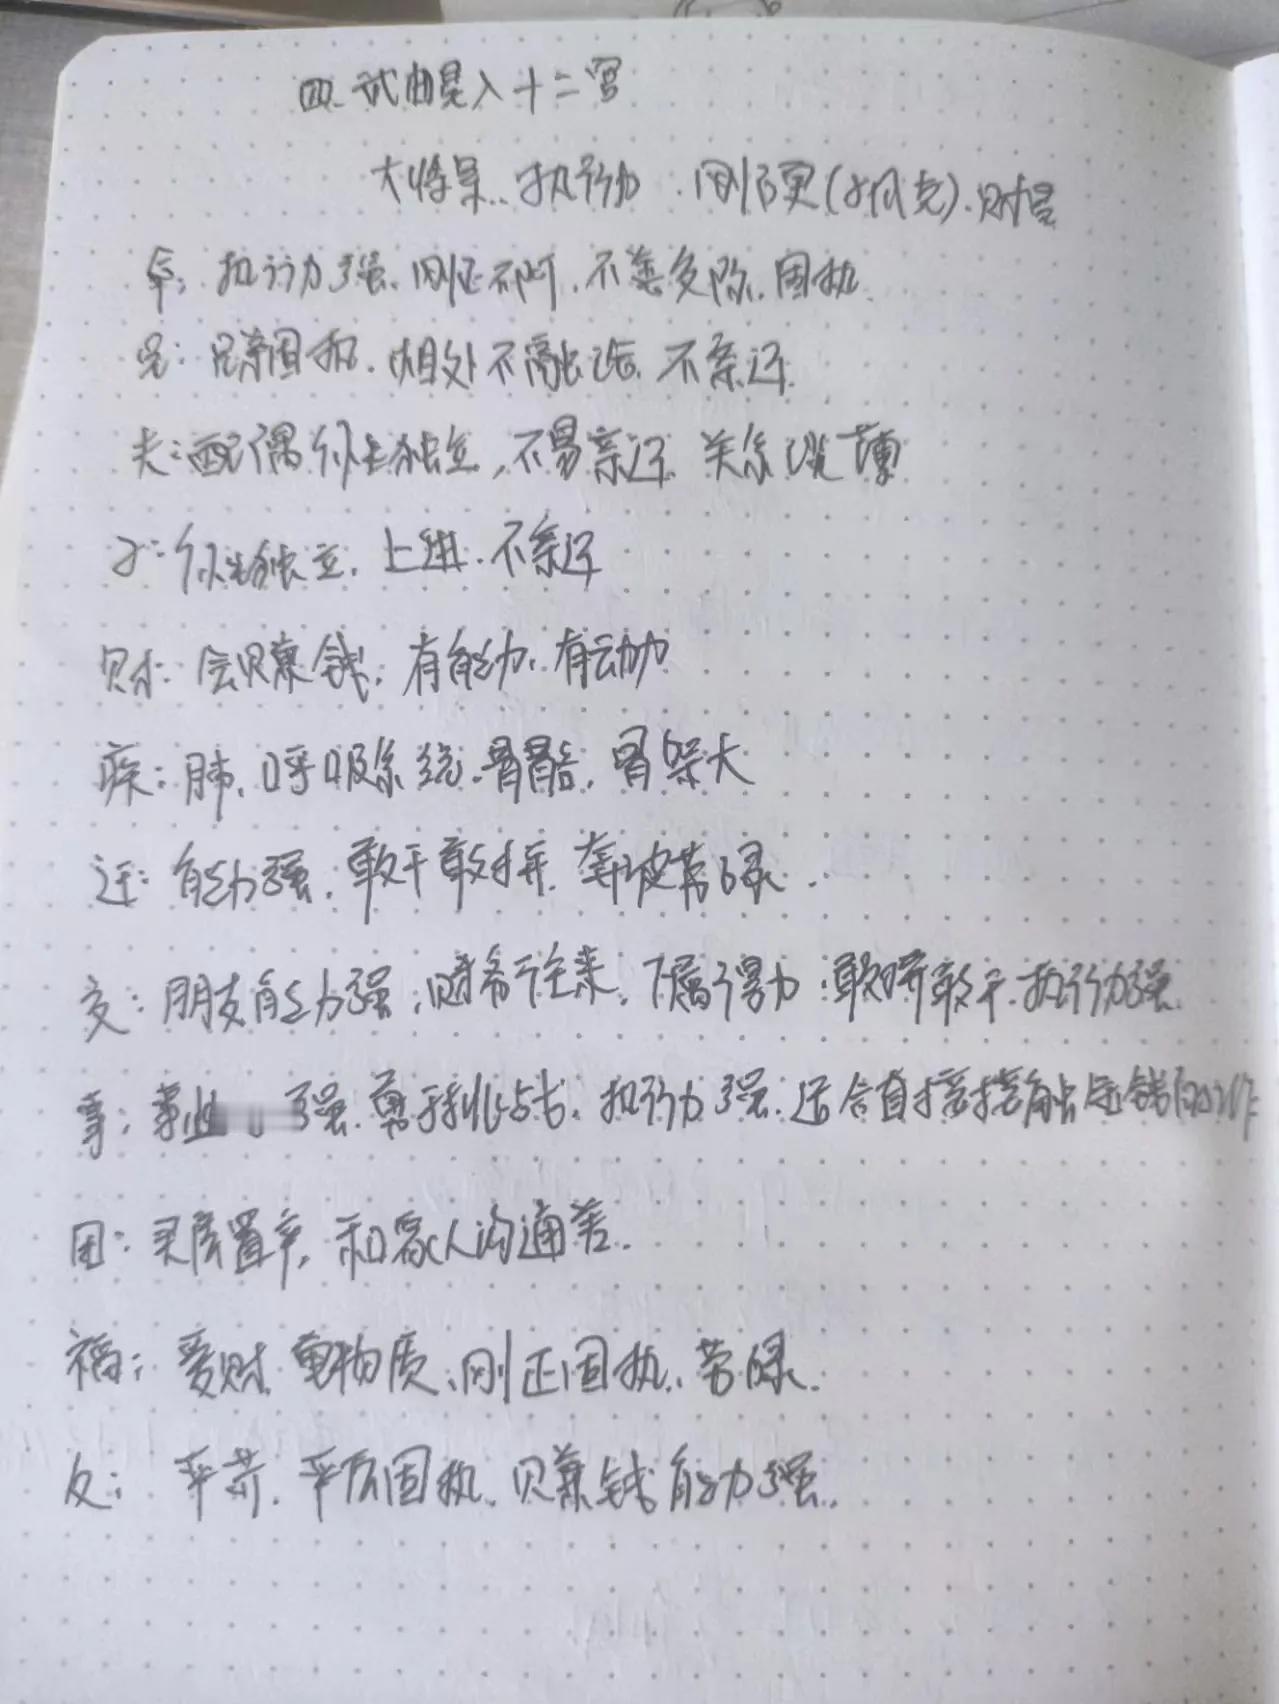 四、武曲星入十二宫
大将星、执行力、刚硬(孤克)、财星
命：执行力强、刚正不阿、不善交际、固执
兄：兄弟固执、相处不融洽、不亲近
夫：配偶个性独立，不易亲近、关系淡薄
子：个性独立，上进、不亲近
财：会赚钱，有能力、有动力
疾：肺、呼吸系统、骨骼，骨架大
迁：能力强、敢干敢拼、奔波劳碌．
交：朋友能力强，来、下属得力，敢拼敢干、执行力强
事：事业 强、勇于挑战、执行力强、适合直接接触金钱的工作
田：买房置产，和家人沟通差．
福：爱财、重物质、刚正固执、劳碌．
父：严苛、严厉固执、赚钱能力强．